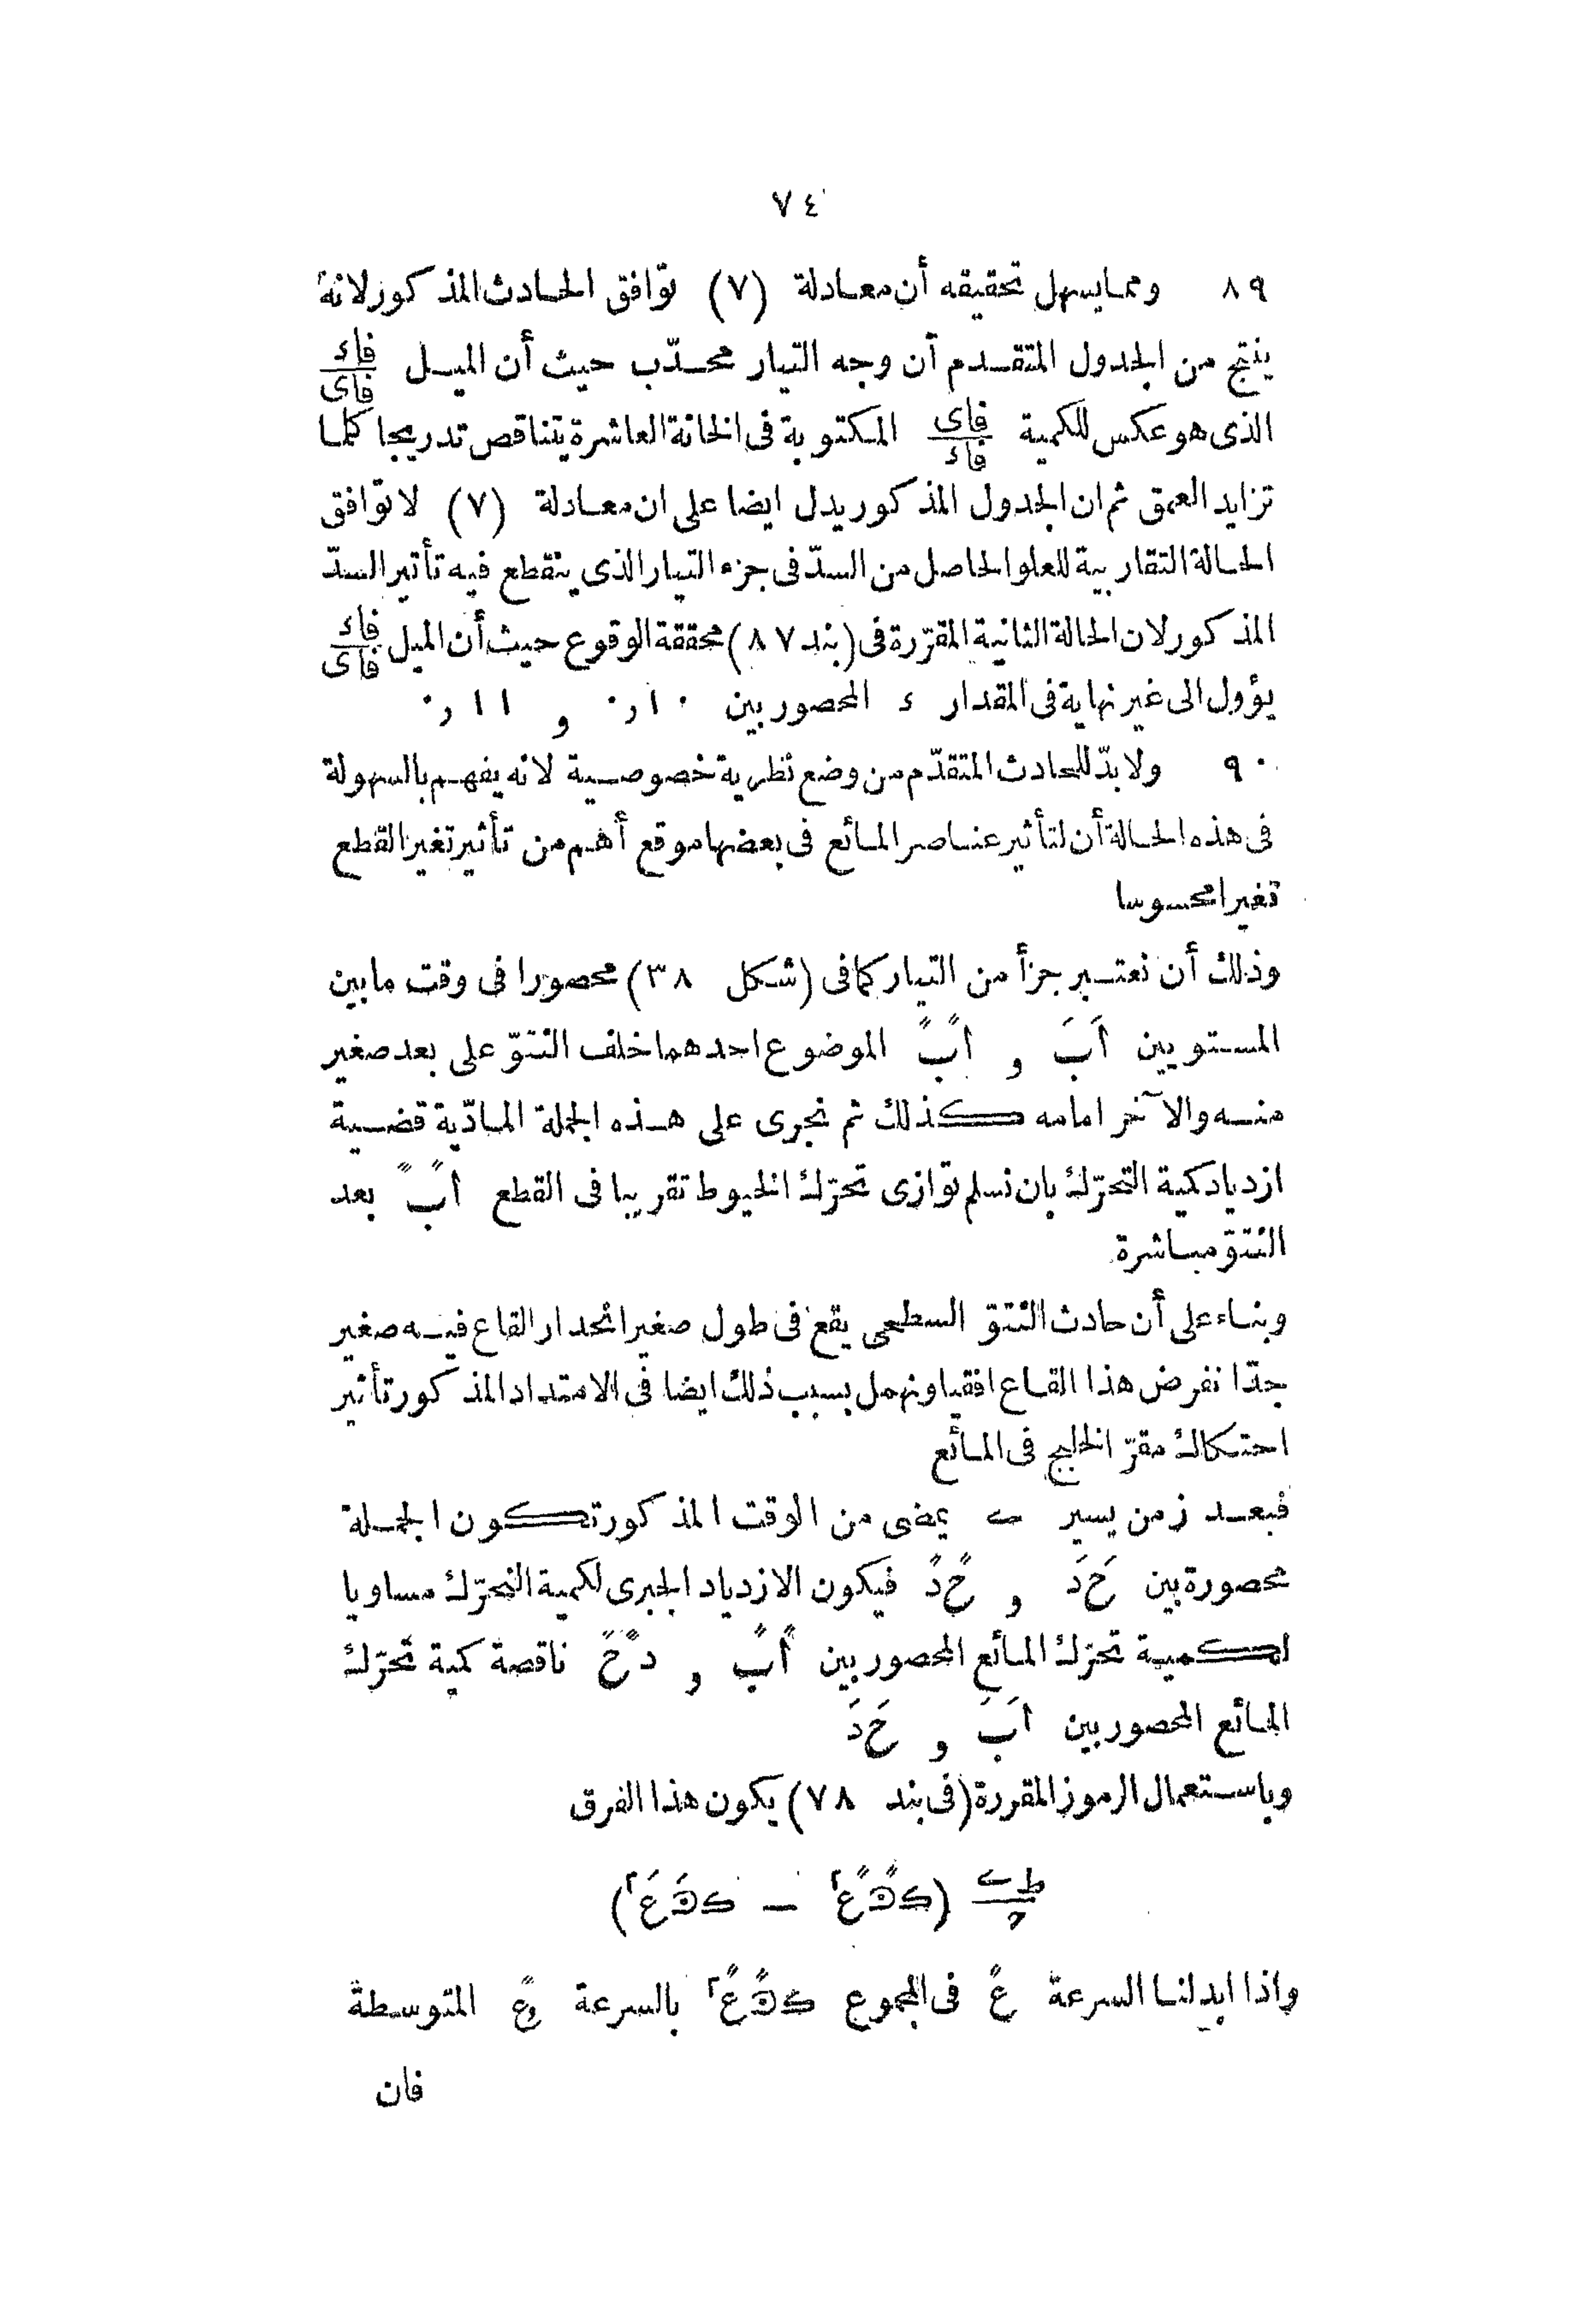 ٧٤
٨٩ ومما يسهل تحقيقه أن معادلة (٧) توافق الحادث المذكور لانه
ينتج من الجدول المتقدم أن وجه التيار محدّب حيث أن الميل فاء/فاى
الذى هو عكس للكمية فاى/فاء المكتوبة فى الخانة العاشرة يتناقص تدريجا كلما
تزايد العمق ثم ان الجدول المذكور يدل ايضا على ان معادلة (٧) لا توافق
الحالة التقاربية للعلو الحاصل من السدّ فى جزء التيار الذى ينقطع فيه تأثير السدّ
المذكور لان الحالة الثانية المقرّرة فى (بند ٨٧) محققة الوقوع حيث أن الميل فاء/فاى
يؤول الى غير نهاية فى المقدار ء المحصور بين ٠ر١٠ و ٠ر١١
٩٠ ولا بدّ للحادث المتقدّم من وضع نظرية خصوصية لانه يفهم بالسهولة
فى هذه الحالة أن لتأثير عناصر المائع فى بعضها موقع أهم من تأثير تغير القطع
تغيرا محسوسا
وذلك أن نعتبر جزأ من التيار كما فى (شكل ٣٨) محصورا فى وقت ما بين
المستويين اَبَ و اًبً الموضوع احدهما خلف النتوّ على بعد صغير
منه والآخر امامه كذلك ثم نجرى على هذه الجملة المادّية قضية
ازدياد كمية التحرّك بان نسلم توازى تحرّك الخيوط تقريبا فى القطع اًبً بعد
النتوّ مباشرة
وبناء على أن حادث النتوّ السطحى يقع فى طول صغير انحدار القاع فيه صغير
جدّا نفرض هذا القاع افقيا ونهمل بسبب ذلك ايضا فى الامتداد المذكور تأثير
احتكاك مقرّ الخليج فى المائع
فبعد زمن يسير يمضى من الوقت المذكور تكون الجملة
محصورة بين حَدَ و حًدً فيكون الازدياد الجبرى لكمية التحرّك مساويا
لكمية تحرّك المائع المحصور بين اًبً و دًحً ناقصة كمية تحرّك
المائع المحصور بين اَبَ و حَدَ
وباستعمال الرموز المقررة (فى بند ٧٨) يكون هذا الفرق
واذا ابدلنا السرعة عً فى المجموع بالسرعة المتوسطة
فان